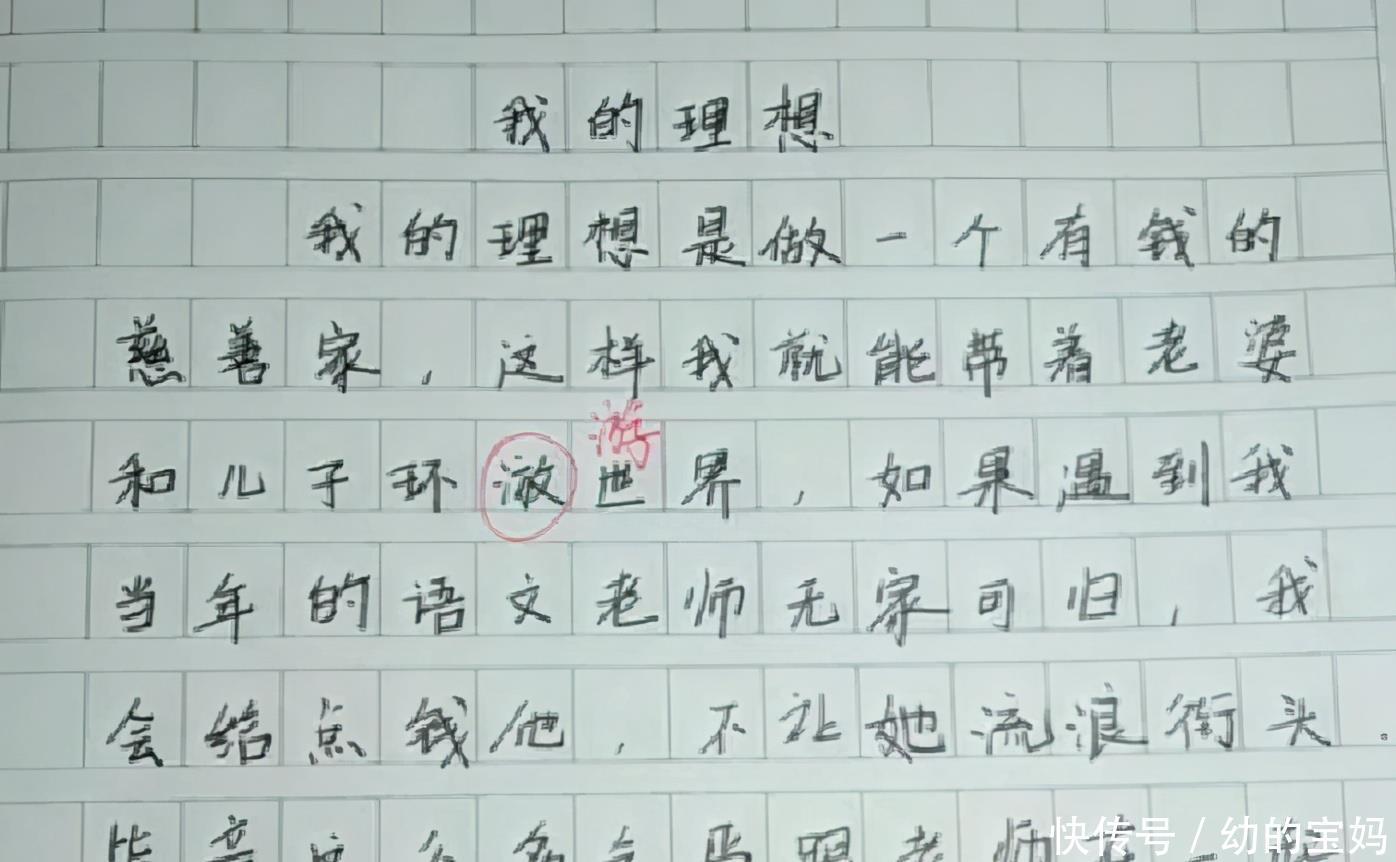 我的理想
我的理想是做一个有钱的
慈善家，这样我就能带着老婆
游
和儿子环世界，如果遇到我
当年的语文老师无家可归，我
会给点钱他，不让她流浪街头。
毕竟这么多年老师
快传号 / 幼的宝妈